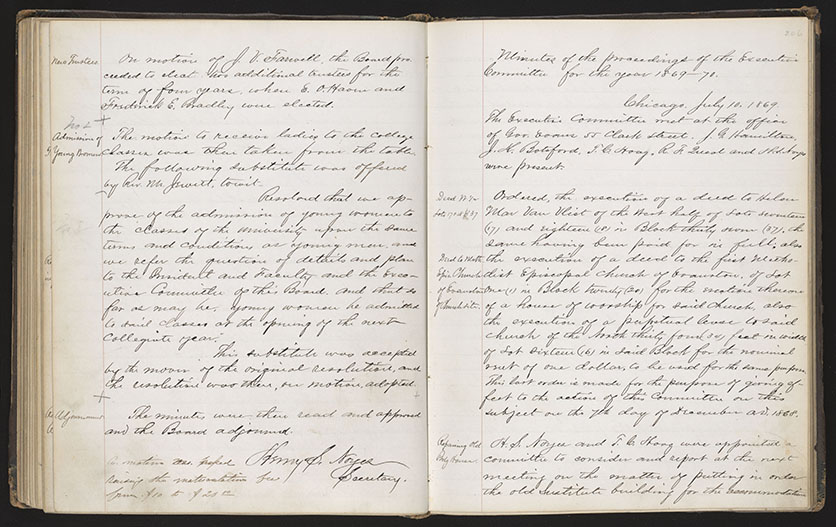 New Trustees
On motion of J. V. Farwell, the Board pro-
ceeded to elect two additional trustees for the
term of four years, when E. O. Haven and
Frederick E. Bradley were elected.
Admission of
Young Women
The motion to receive ladies to the college
classes was then taken from the table.
The following substitute was offered
by Rev. Mr. Jewitt, to wit.
Resolved that we ap-
prove of the admission of young women to
the classes of the University upon the same
terms and conditions as young men, and
we refer the question of details and plan
to the President and Faculty and the Exec-
utive Committee of this Board, and that so
far as may be, young women be admitted
to said classes at the opening of the next
Collegiate year.
This substitute was accepted
by the mover of the original resolution, and
the resolution was then, on motion, adopted.
Adjournment
The minutes were then read and approved
and the Board adjourned.
Henry S. Noyes
Secretary.
on motion
raising the matriculation fee
from $10 to $20
206
Minutes of the proceedings of the Executive
Committee for the year 1869-70.
Chicago, July 10, 1869
The Executive Committee met at the office
of Gov. Evans 55 Clark Street. J. G. Hamilton,
J. K. Botsford, T. C. Hoag, R. F. Queal and H. S. Noyes
were present.
Ordered, the execution of a deed to Helen
Mar Van Vlist of the West half of Lots seventeen
(17) and eighteen (18) in Block thirty seven (37), the
same having been paid for in full, also
Deed to Meth.
Epis. Church
of Evanston
the execution of a deed to the first Metho-
dist Episcopal Church of Evanston, of Lot
One (1) in Block twenty (20) for the erection thereon
of a house of worship for said Church, also
the execution of a perpetual lease to said
church of the North thirty four (34) feet in width
of Lot Sixteen (16) in said Block for the nominal
rent of one dollar, to be used for the same purpose.
This last order is made for the purpose of giving ef-
fect to the action of this Committee on this
subject on the 7th day of December AD. 1868.
Repairing Old
H. S. Noyes and T. C. Hoag were appointed a
committee to consider and report at the next
meeting on the matter of putting in order
the old Institute building for the accommodation